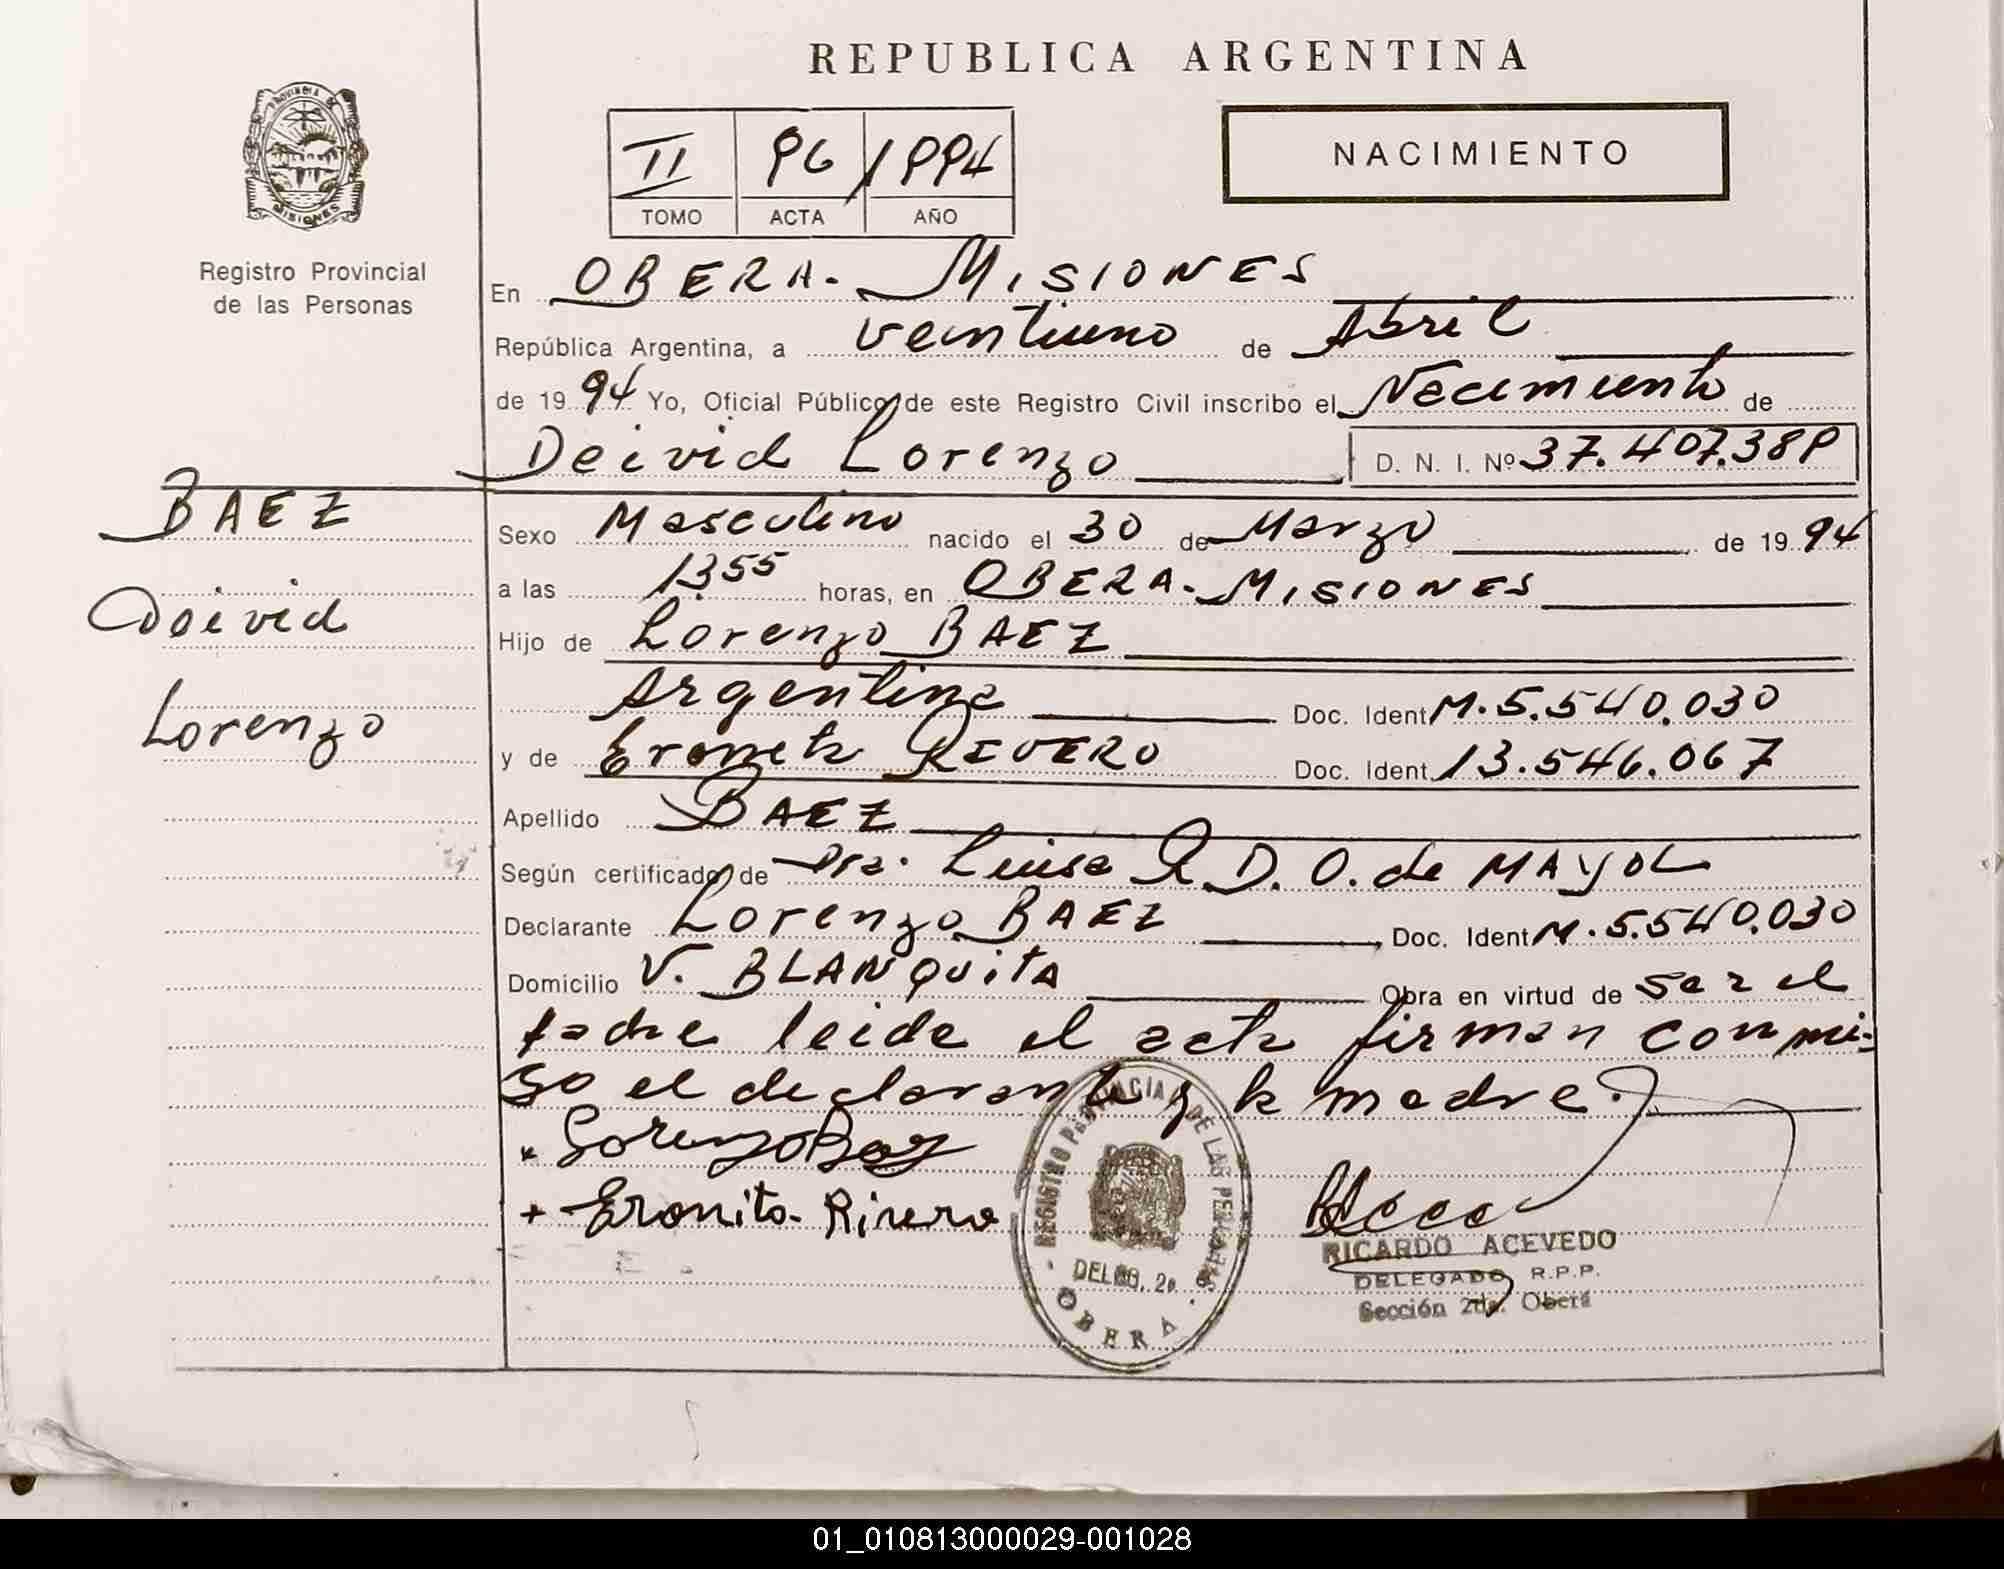 REPUBLICA ARGENTINA
PROVINCIA DE
MISIONES
Registro Provincial
de las Personas
II 96 1994
TOMO ACTA AÑO
NACIMIENTO
En OBERA - MISIONES
República Argentina, a veintiuno de Abril
de 1994 Yo, Oficial Público de este Registro Civil inscribo el Nacimiento de
Deivid Lorenzo D. N. I. Nº 37.407.389
BAEZ
Deivid
Lorenzo
Sexo Masculino nacido el 30 de Marzo de 1994
a las 1355 horas, en OBERA - MISIONES
Hijo de Lorenzo BAEZ
Argentina Doc. Ident M. 5.540.030
y de Eronita RIVERO Doc. Ident. 13.546.067
Apellido BAEZ
Según certificado de Dra. Luisa R D. O. de MAYOL
Declarante Lorenzo BAEZ Doc. Ident M. 5.540.030
Domicilio V. BLANQUITA Obra en virtud de ser el
padre leida el acta firman conmi-
go el declarante y la madre.
Lorenzo Baez
+ Eronita Rivero
REGISTRO PROVINCIAL DE LAS PERSONAS
DELEG. 2a.
OBERA
RICARDO ACEVEDO
DELEGADO R.P.P.
Sección 2da. Oberá
01_010813000029-001028